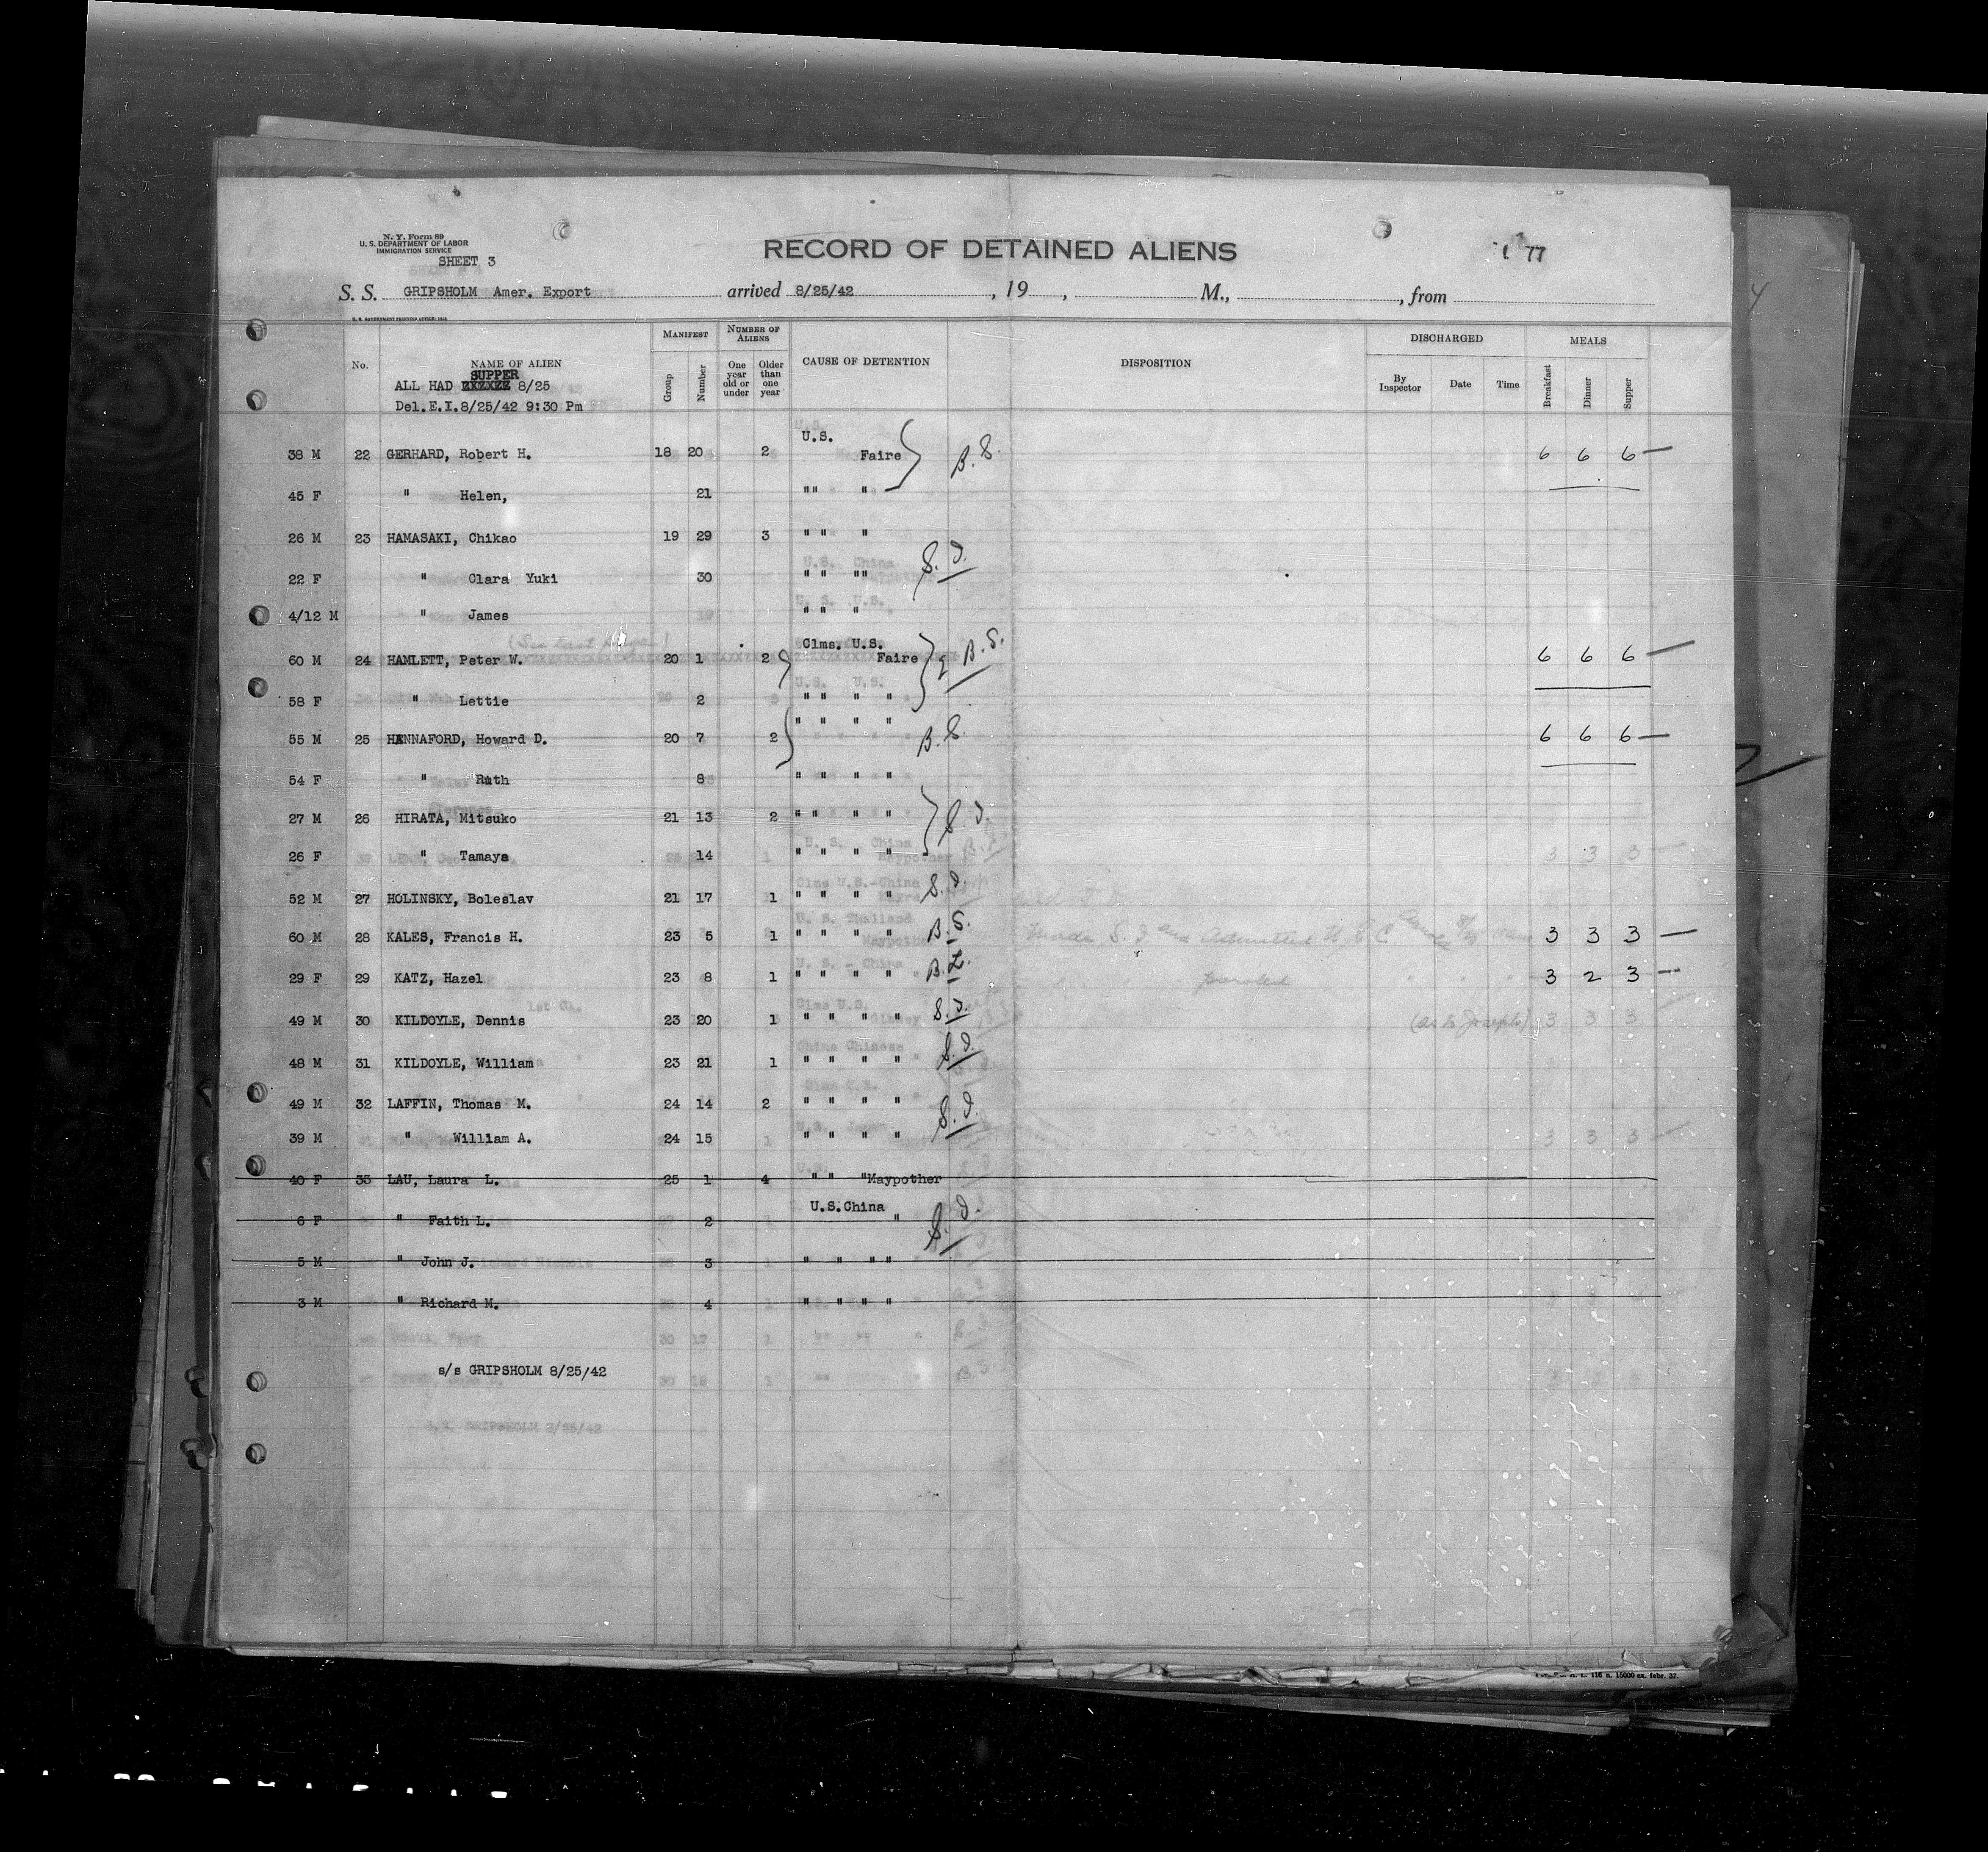 N. Y. Form 89
U. S. DEPARTMENT OF LABOR
IMMIGRATION SERVICE
SHEET 3
RECORD OF DETAINED ALIENS
77
S. S. GRIPSHOLM Amer. Export arrived 8/25/42, 19 , M., , from
No. NAME OF ALIEN MANIFEST Group Number NUMBER OF ALIENS One year old or under Older than one year CAUSE OF DETENTION DISPOSITION DISCHARGED By Inspector Date Time MEALS Breakfast Dinner Supper
SUPPER
ALL HAD 8/25
Del.E.I.8/25/42 9:30 Pm
38 M 22 GERHARD, Robert H. 18 20 2 U.S. Faire B. S. 6 6 6 —
45 F " Helen, 21 "" "
26 M 23 HAMASAKI, Chikao 19 29 3 " " "
22 F " Clara Yuki 30 " " "" S. I.
4/12 M " James " " "
60 M 24 HAMLETT, Peter W. 20 1 2 Clms. U.S. Faire B. S. 6 6 6 —
58 F " Lettie 2 " " " "
55 M 25 HANNAFORD, Howard D. 20 7 2 " " " " B. S. 6 6 6 —
54 F " Ruth 8 " " " "
27 M 26 HIRATA, Mitsuko 21 13 2 " " " " S. I.
26 F " Tamaya 14 " " " "
52 M 27 HOLINSKY, Boleslav 21 17 1 " " " " S. I.
60 M 28 KALES, Francis H. 23 5 1 " " " " B. S. 3 3 3 —
29 F 29 KATZ, Hazel 23 8 1 " " " " 3 2 3 —
49 M 30 KILDOYLE, Dennis 23 20 1 " " " " S. I.
48 M 31 KILDOYLE, William 23 21 1 " " " " S. I.
49 M 32 LAFFIN, Thomas M. 24 14 2 " " " " S. I.
39 M " William A. 24 15 " " " "
40 F 33 LAU, Laura L. 25 1 4 " " "Maypother
6 F " Faith L. 2 U.S.China " S. I.
5 M " John J. 3 " " " "
3 M " Richard M. 4 " " " "
s/s GRIPSHOLM 8/25/42
116 n. 15000 ex. febr. 37.